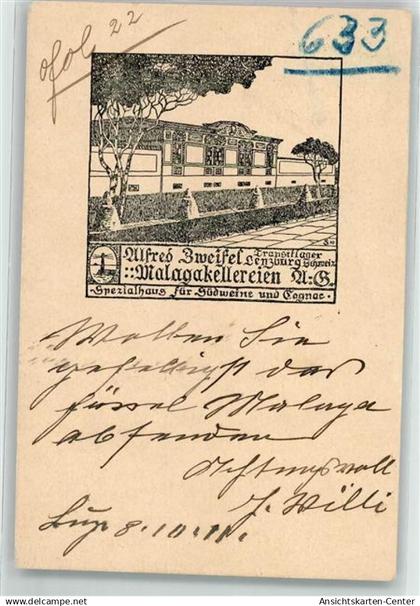 fol 22
633
Alfred Zweifel Transitlager
Lenzburg Schweiz
::Malagakellereien A:G.
·Spezialhaus für Südweine und Cognac·
Wollen Sie
gefälligst das
fässel Malaga
absenden
Achtungsvoll
J. Willi
Luz. 8.10.11.
Ansichtskarten-Center
www.delcampe.net